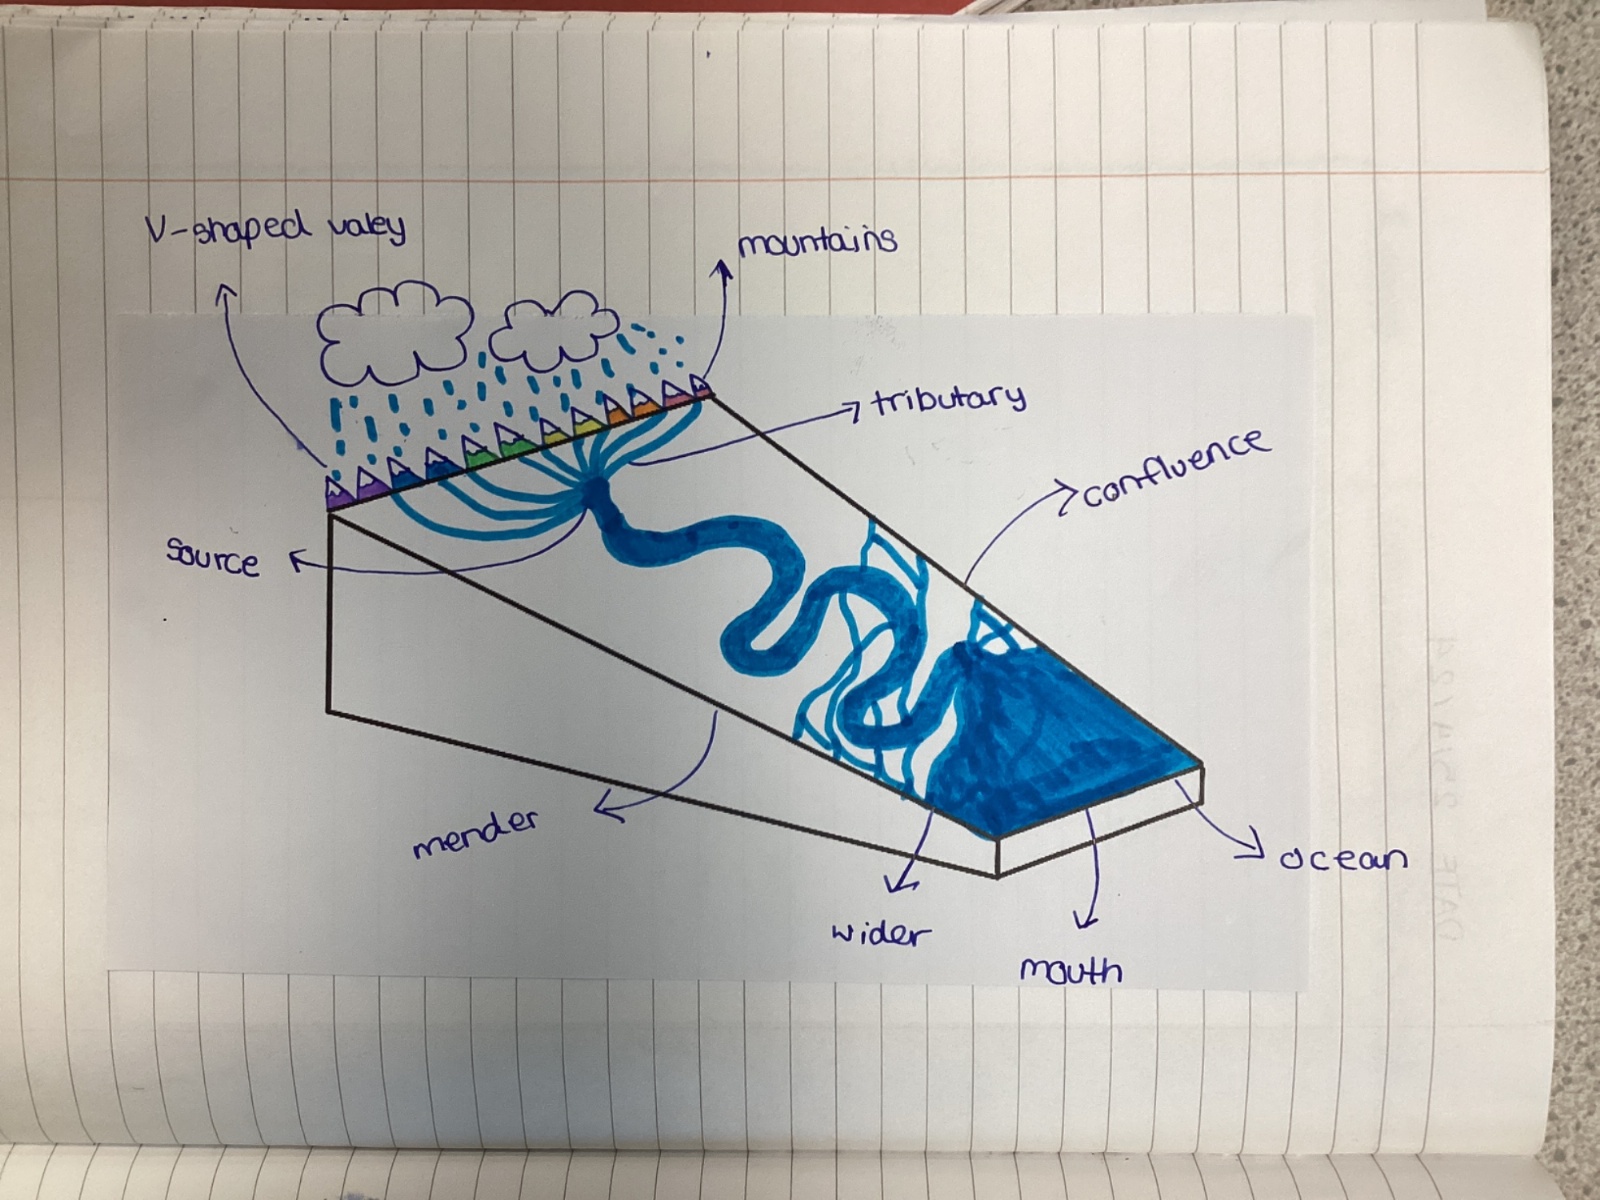 V-shaped valey
mountains
tributary
confluence
source
mender
wider
mouth
ocean